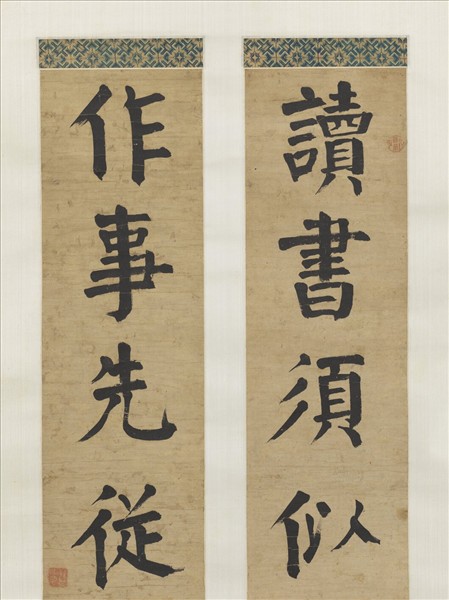 讀書須似
作事先従